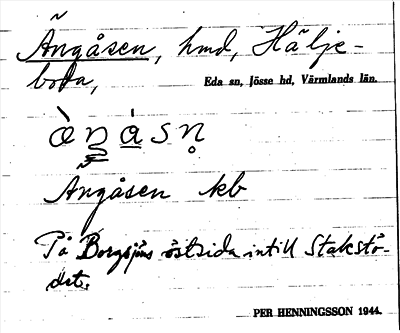 Ängåsen, hmd, Hälje-
boda,
Eda sn, Jösse hd, Värmlands län.
Ängåsen kb
På Borgsjöns östsida intill Stakstö-
det.
PER HENNINGSSON 1944.